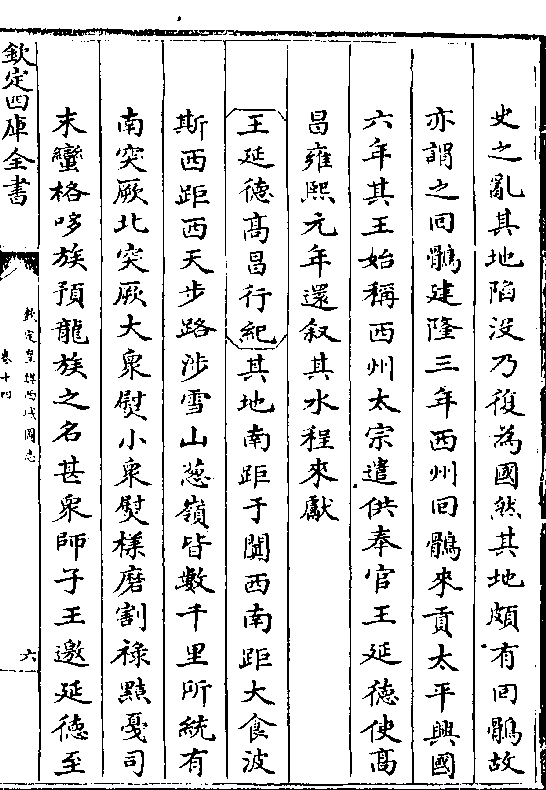 史之亂其地陷没乃復為國然其地頗有回鶻故
亦謂之回鶻建隆三年西州回鶻來貢太平興國
六年其王始稱西州太宗遣供奉官王延德使髙
昌雍熙元年還叙其水程來獻
王延德髙昌行紀其地南距于闐西南距大食波
斯西距西天步路涉雪山葱嶺皆數千里所統有
南突厥北突厥大衆熨小衆熨樣磨割禄黠戛司
末蠻格哆族預龍族之名甚衆師子王邀延德至
欽定四庫全書
欽定皇輿西域圖志
卷十四
六